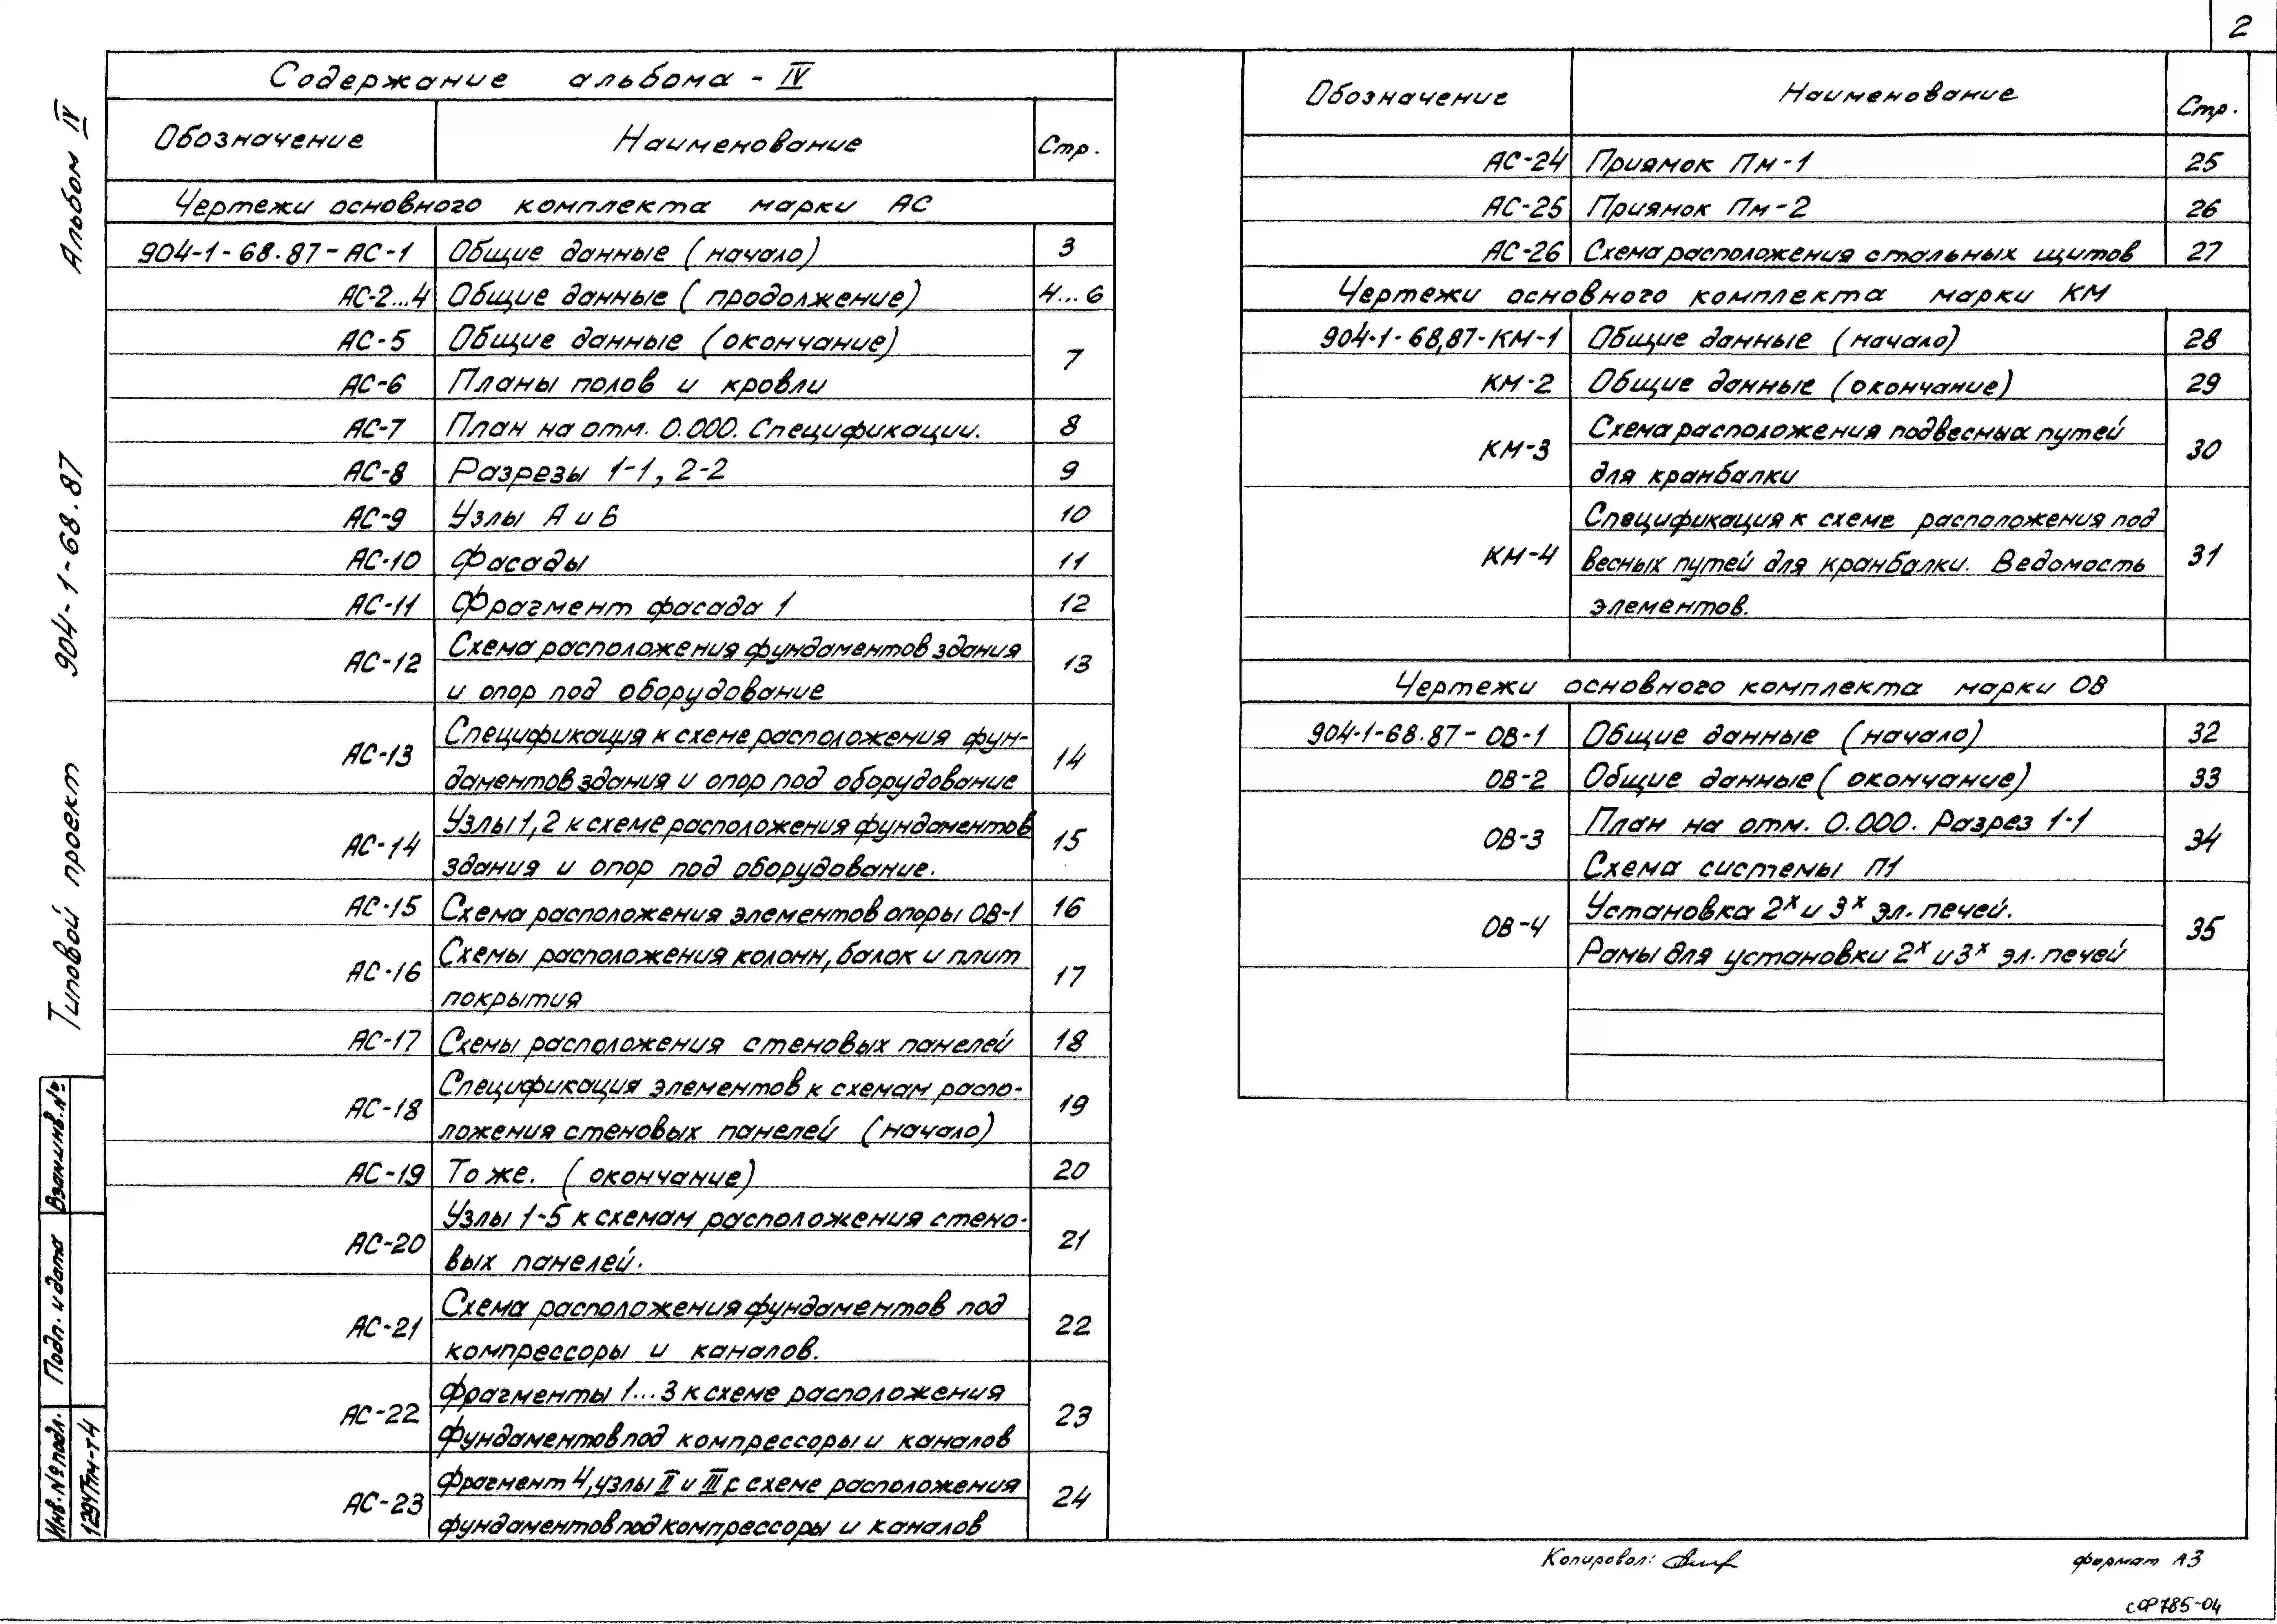 2
Содержание альбома - IV
Обозначение Наименование Стр.
Чертежи основного комплекта марки АС
904-1-68.87-АС-1 Общие данные (начало) 3
АС-2...4 Общие данные (продолжение) 4...6
АС-5 Общие данные (окончание) 7
АС-6 Планы полов и кровли
АС-7 План на отм. 0.000. Спецификации. 8
АС-8 Разрезы 1-1, 2-2 9
АС-9 Узлы А и Б 10
АС-10 Фасады 11
АС-11 Фрагмент фасада 1 12
АС-12 Схема расположения фундаментов здания 13
и опор под оборудование
АС-13 Спецификация к схеме расположения фун- 14
даментов здания и опор под оборудование
АС-14 Узлы 1,2 к схеме расположения фундаментов 15
здания и опор под оборудование.
АС-15 Схема расположения элементов опоры ОВ-1 16
АС-16 Схемы расположения колонн, балок и плит 17
покрытия
АС-17 Схемы расположения стеновых панелей 18
АС-18 Спецификация элементов к схемам распо- 19
ложения стеновых панелей (начало)
АС-19 То же. (окончание) 20
АС-20 Узлы 1-5 к схемам расположения стено- 21
вых панелей.
АС-21 Схема расположения фундаментов под 22
компрессоры и каналов.
АС-22 Фрагменты 1...3 к схеме расположения 23
фундаментов под компрессоры и каналов
АС-23 Фрагмент 4, узлы II и III к схеме расположения 24
фундаментов под компрессоры и каналов
Обозначение Наименование Стр.
АС-24 Приямок Пм-1 25
АС-25 Приямок Пм-2 26
АС-26 Схема расположения стальных щитов 27
Чертежи основного комплекта марки КМ
904-1-68,87-КМ-1 Общие данные (начало) 28
КМ-2 Общие данные (окончание) 29
КМ-3 Схема расположения подвесных путей 30
для кранбалки
КМ-4 Спецификация к схеме расположения под 31
весных путей для кранбалки. Ведомость
элементов.
Чертежи основного комплекта марки ОВ
904-1-68.87-ОВ-1 Общие данные (начало) 32
ОВ-2 Общие данные (окончание) 33
ОВ-3 План на отм. 0.000. Разрез 1-1 34
Схема системы П1
ОВ-4 Установка 2х и 3х эл. печей. 35
Рамы для установки 2х и 3х эл. печей
Типовой проект 904-1-68.87 Альбом IV
Взам.инв.№
Подп. и дата
Инв.№подл.
1294тм-т4
Копировал:
формат А3
сФ785-04